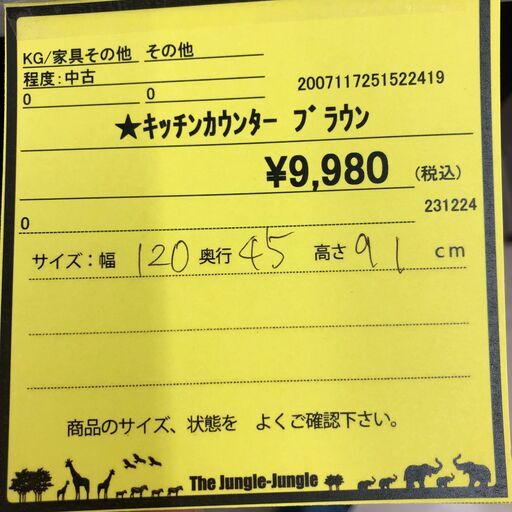 KG/家具その他 その他
程度:中古
0 0 2007117251522419
★ｷｯﾁﾝｶｳﾝﾀｰ ﾌﾞﾗｳﾝ
¥9,980 (税込)
0 231224
サイズ:幅 120 奥行 45 高さ 91 cm
商品のサイズ、状態を よくご確認下さい。
The Jungle-Jungle